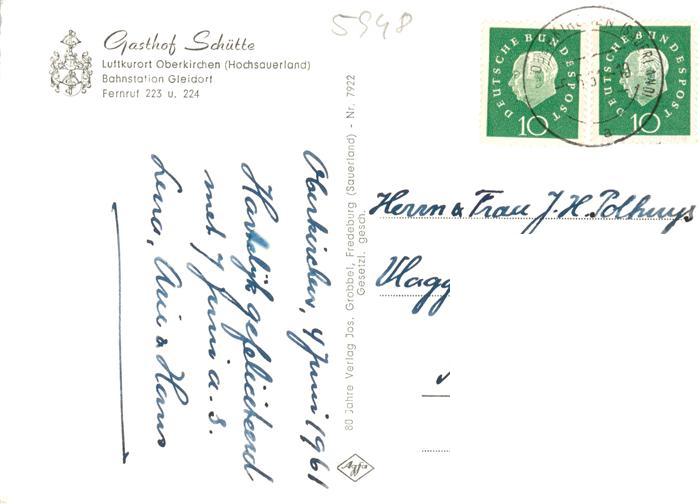 Gasthof Schütte
Luftkurort Oberkirchen (Hochsauerland)
Bahnstation Gleidorf
Fernruf 223 u. 224
5948
DEUTSCHE BUNDESPOST
10
DEUTSCHE BUNDESPOST
10
a
Oberkirchen, 4 Juni 1961
Hartelijk gefeliciteerd
met 7 Juni a.s.
Lena, Arie & Hans
80 Jahre Verlag Jos. Grobbel, Fredeburg (Sauerland) - Nr. 7922
Gesetzl. gesch.
Agfa
Herrn & Frau J. H. Polhuys